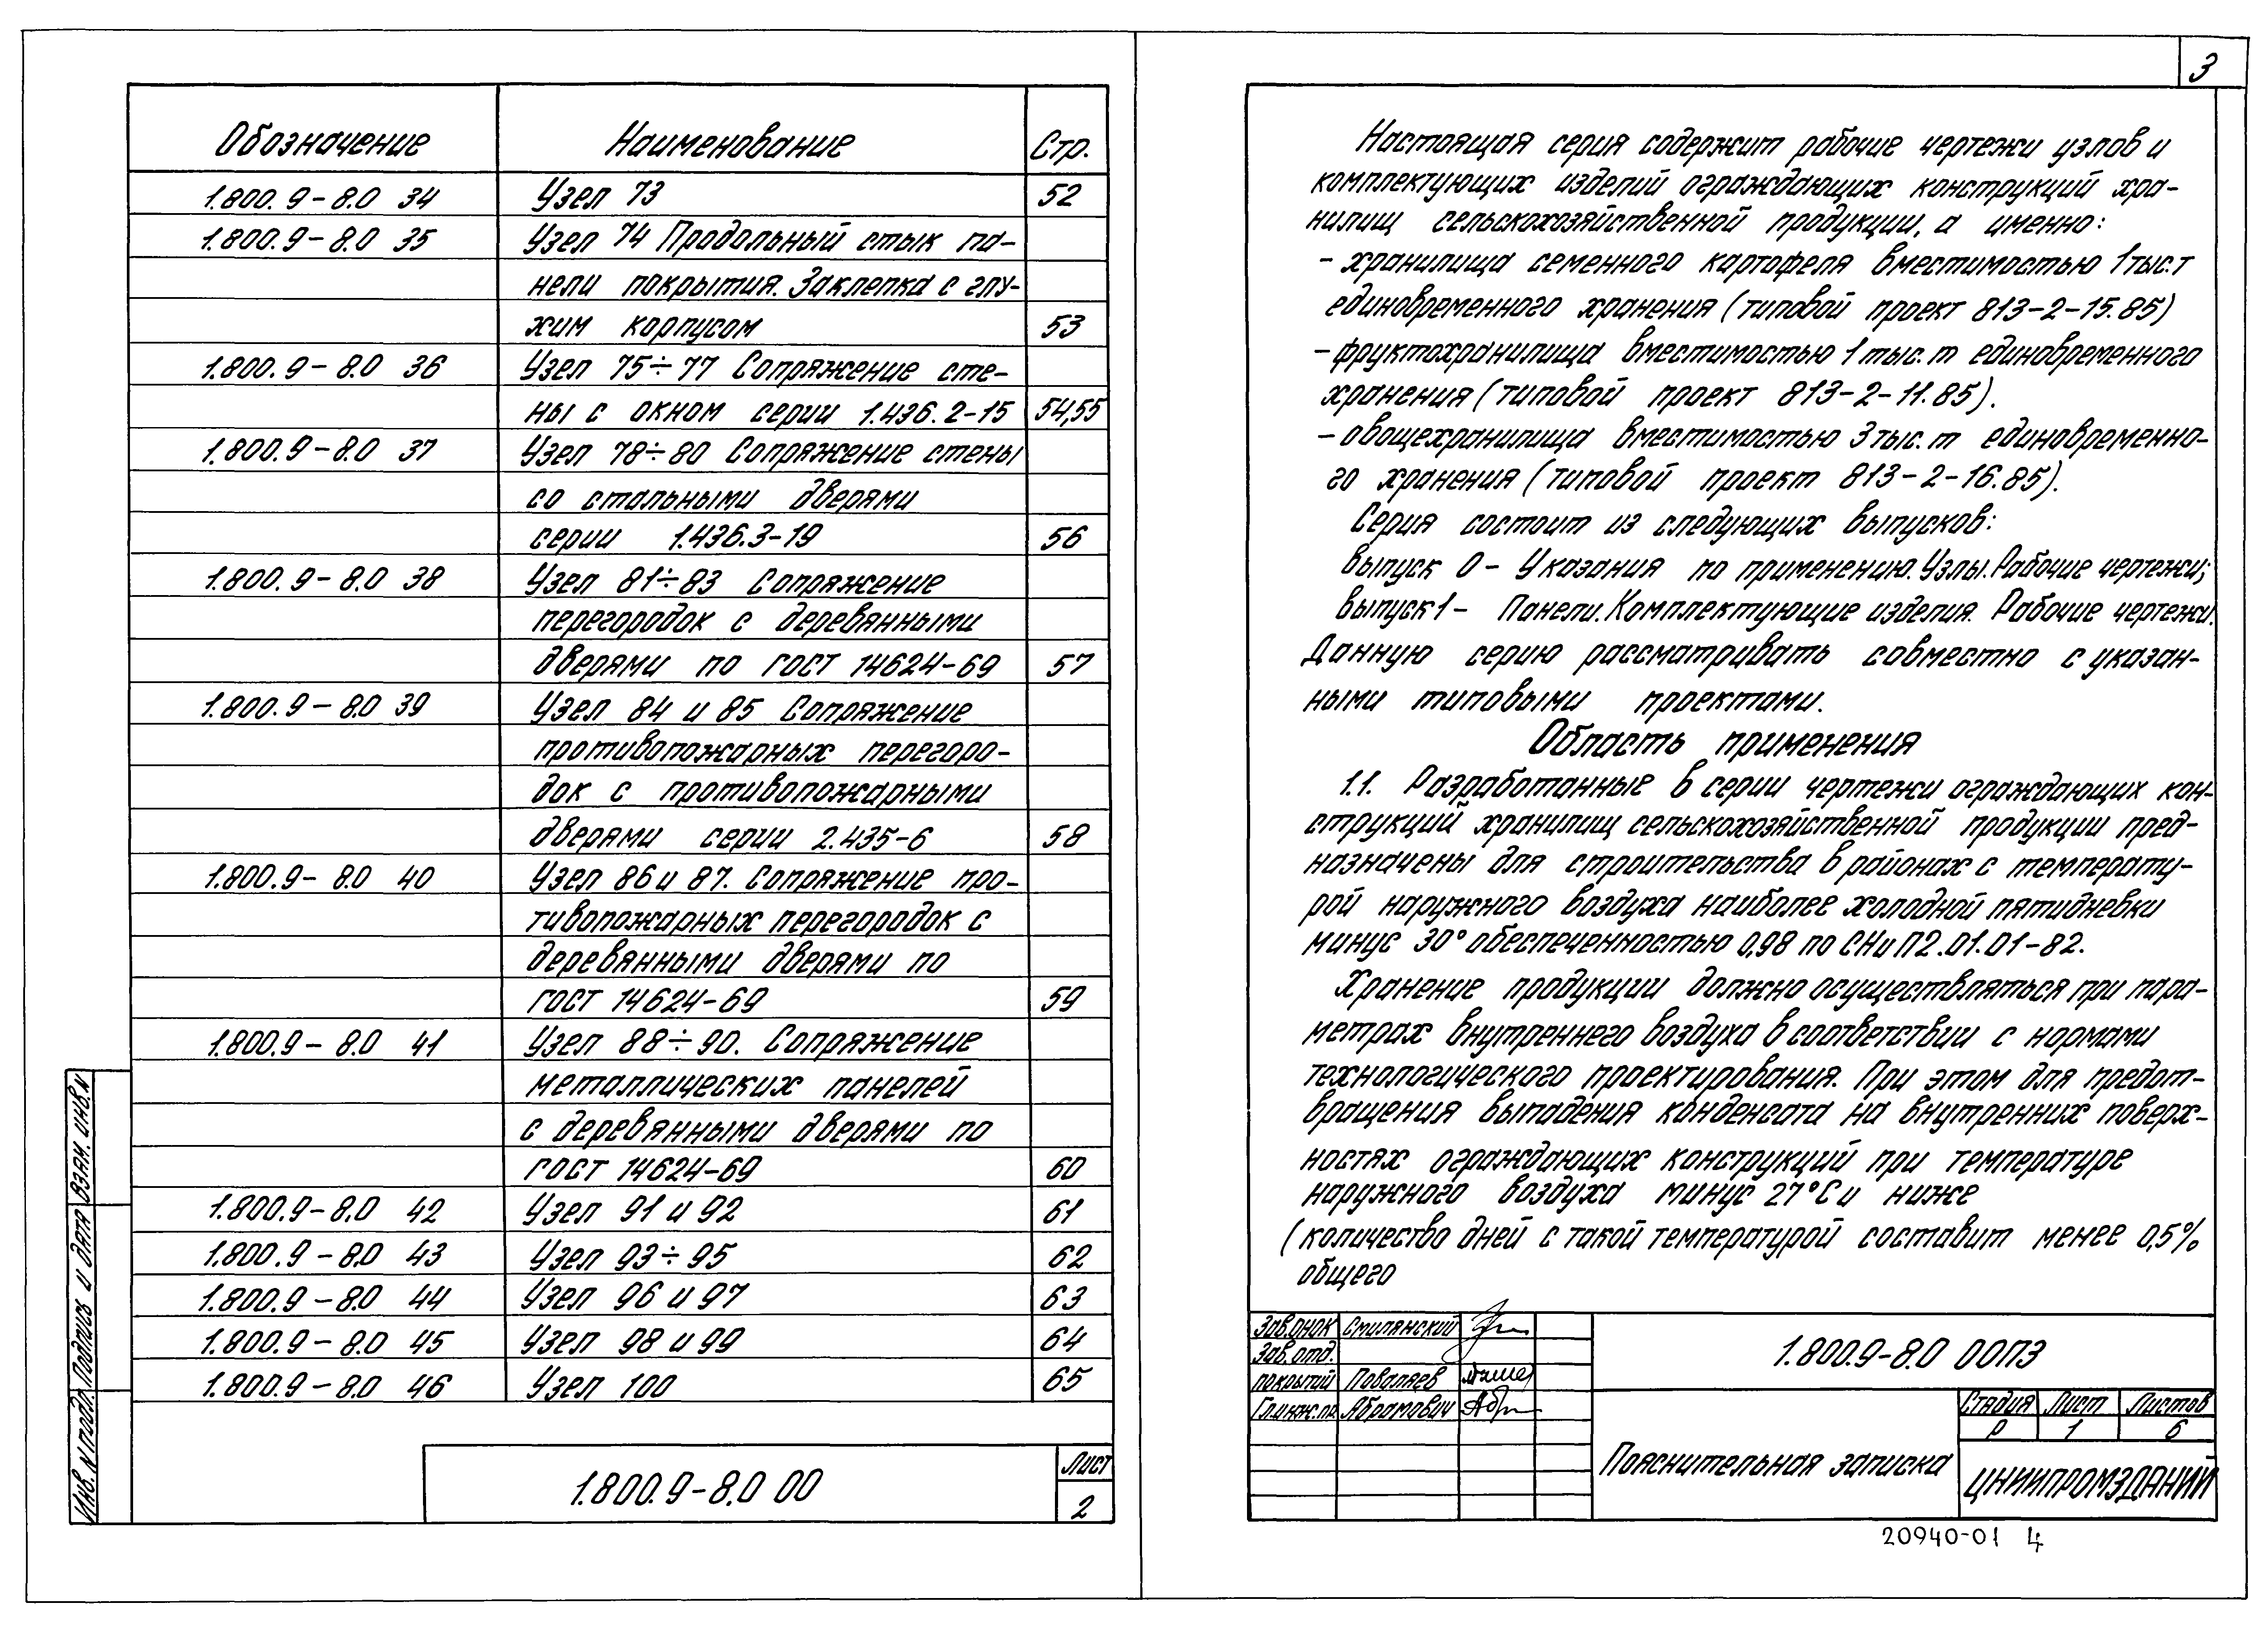 Обозначение Наименование Стр.
1.800.9-8.0 34 Узел 73 52
1.800.9-8.0 35 Узел 74 Продольный стык па-
нели покрытия. Заклепка с глу-
хим корпусом 53
1.800.9-8.0 36 Узел 75÷77 Сопряжение сте-
ны с окном серии 1.436.2-15 54,55
1.800.9-8.0 37 Узел 78÷80 Сопряжение стены
со стальными дверями
серии 1.436.3-19 56
1.800.9-8.0 38 Узел 81÷83 Сопряжение
перегородок с деревянными
дверями по ГОСТ 14624-69 57
1.800.9-8.0 39 Узел 84 и 85 Сопряжение
противопожарных перегоро-
док с противопожарными
дверями серии 2.435-6 58
1.800.9-8.0 40 Узел 86 и 87. Сопряжение про-
тивопожарных перегородок с
деревянными дверями по
ГОСТ 14624-69 59
1.800.9-8.0 41 Узел 88÷90. Сопряжение
металлических панелей
с деревянными дверями по
ГОСТ 14624-69 60
1.800.9-8.0 42 Узел 91 и 92 61
1.800.9-8.0 43 Узел 93÷95 62
1.800.9-8.0 44 Узел 96 и 97 63
1.800.9-8.0 45 Узел 98 и 99 64
1.800.9-8.0 46 Узел 100 65
Инв. N подл. Подпись и дата Взам. инв. N
1.800.9-8.0 00
Лист
2
3
Настоящая серия содержит рабочие чертежи узлов и
комплектующих изделий ограждающих конструкций хра-
нилищ сельскохозяйственной продукции, а именно:
- хранилища семенного картофеля вместимостью 1 тыс.т
единовременного хранения (типовой проект 813-2-15.85)
- фруктохранилища вместимостью 1 тыс. т единовременного
хранения (типовой проект 813-2-11.85).
- овощехранилища вместимостью 3 тыс. т единовременно-
го хранения (типовой проект 813-2-16.85).
Серия состоит из следующих выпусков:
выпуск 0 - Указания по применению. Узлы. Рабочие чертежи;
выпуск 1 - Панели. Комплектующие изделия. Рабочие чертежи.
Данную серию рассматривать совместно с указан-
ными типовыми проектами.
Область применения
1.1. Разработанные в серии чертежи ограждающих кон-
струкций хранилищ сельскохозяйственной продукции пред-
назначены для строительства в районах с температу-
рой наружного воздуха наиболее холодной пятидневки
минус 30° обеспеченностью 0,98 по СНиП 2.01.01-82.
Хранение продукции должно осуществляться при пара-
метрах внутреннего воздуха в соответствии с нормами
технологического проектирования. При этом для предот-
вращения выпадения конденсата на внутренних поверх-
ностях ограждающих конструкций при температуре
наружного воздуха минус 27°С и ниже
(количество дней с такой температурой составит менее 0,5%
общего
Зав. ОНОК Смилянский
Зав. отд.
покрытий Поваляев
Гл. инж. пр. Абрамович
1.800.9-8.0 00ПЗ
Пояснительная записка
Стадия Лист Листов
Р 1 6
ЦНИИПРОМЗДАНИЙ
20940-01 4